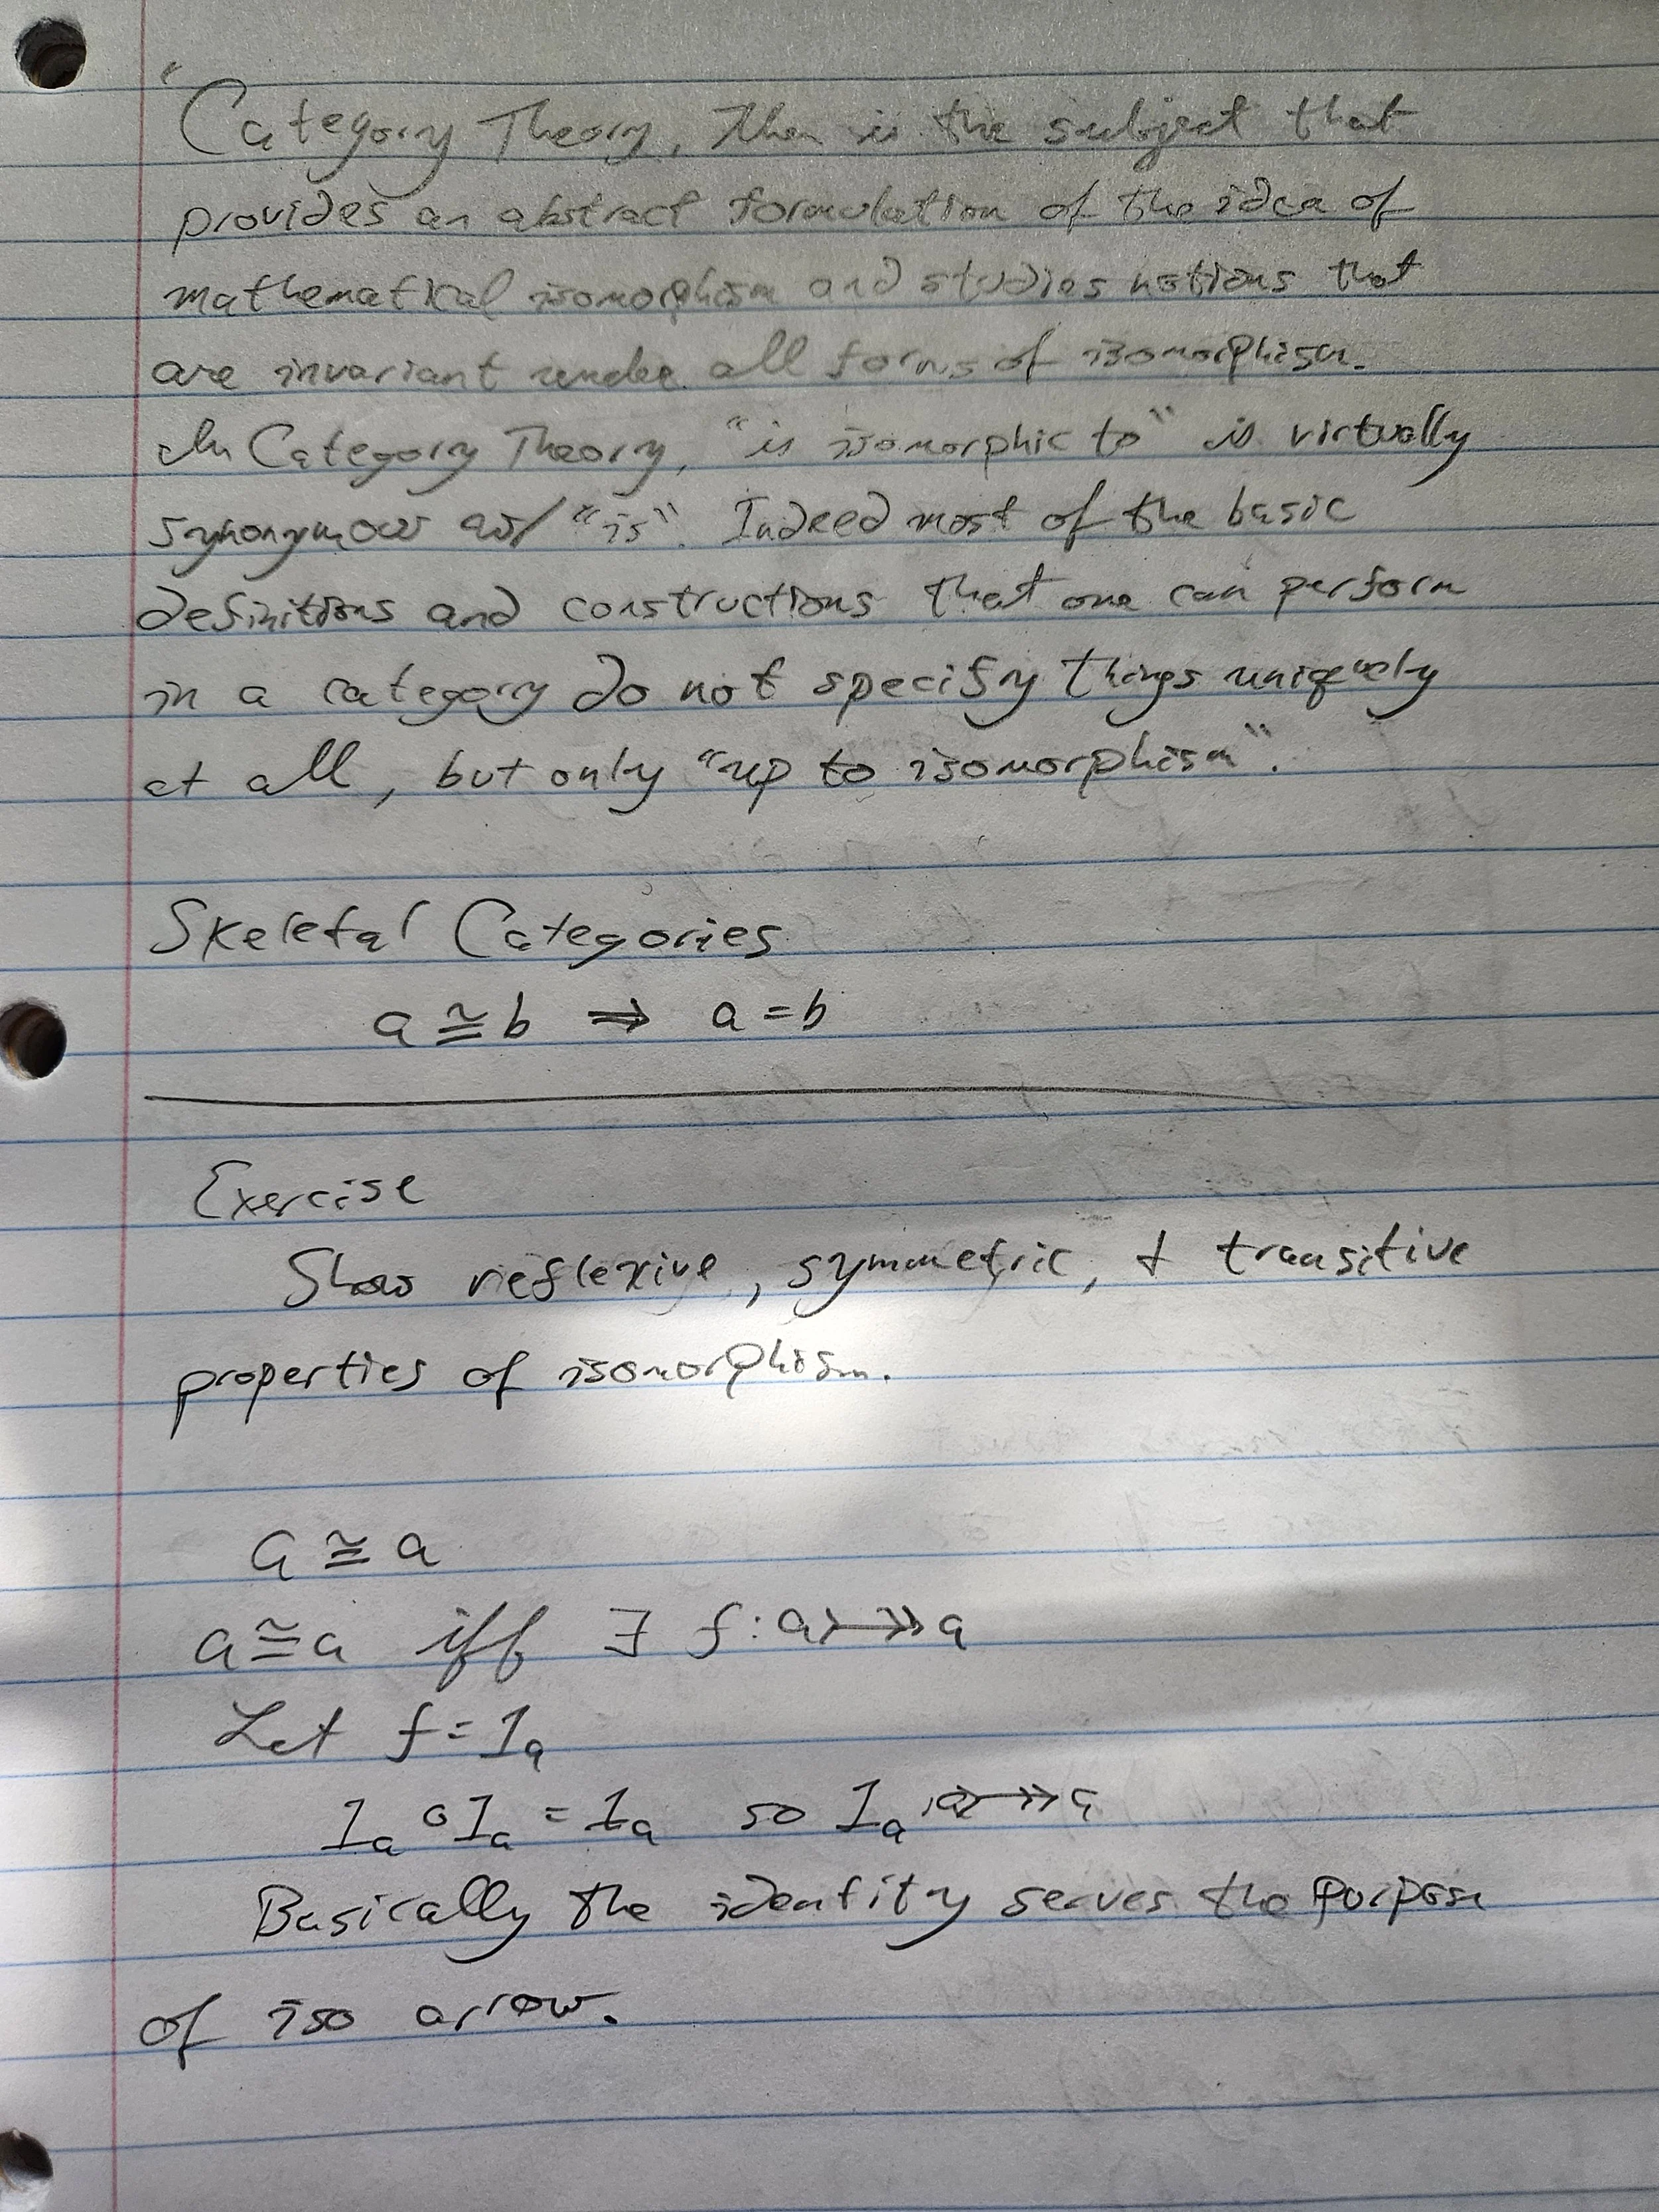 "Category Theory, then is the subject that
provides an abstract formulation of the idea of
mathematical isomorphism and studies notions that
are invariant under all forms of isomorphism.
In Category Theory, "is isomorphic to" is virtually
synonymous w/ "is". Indeed most of the basic
definitions and constructions that one can perform
in a category do not specify things uniquely
at all, but only "up to isomorphism".
Skeletal Categories
a ≅ b ⇒ a = b
Exercise
Show reflexive, symmetric, + transitive
properties of isomorphism.
a ≅ a
a ≅ a iff ∃ f: a ⤖ a
Let f = 1ₐ
1ₐ ∘ 1ₐ = 1ₐ so 1ₐ: a ⤖ a
Basically the identity serves the purpose
of iso arrow.